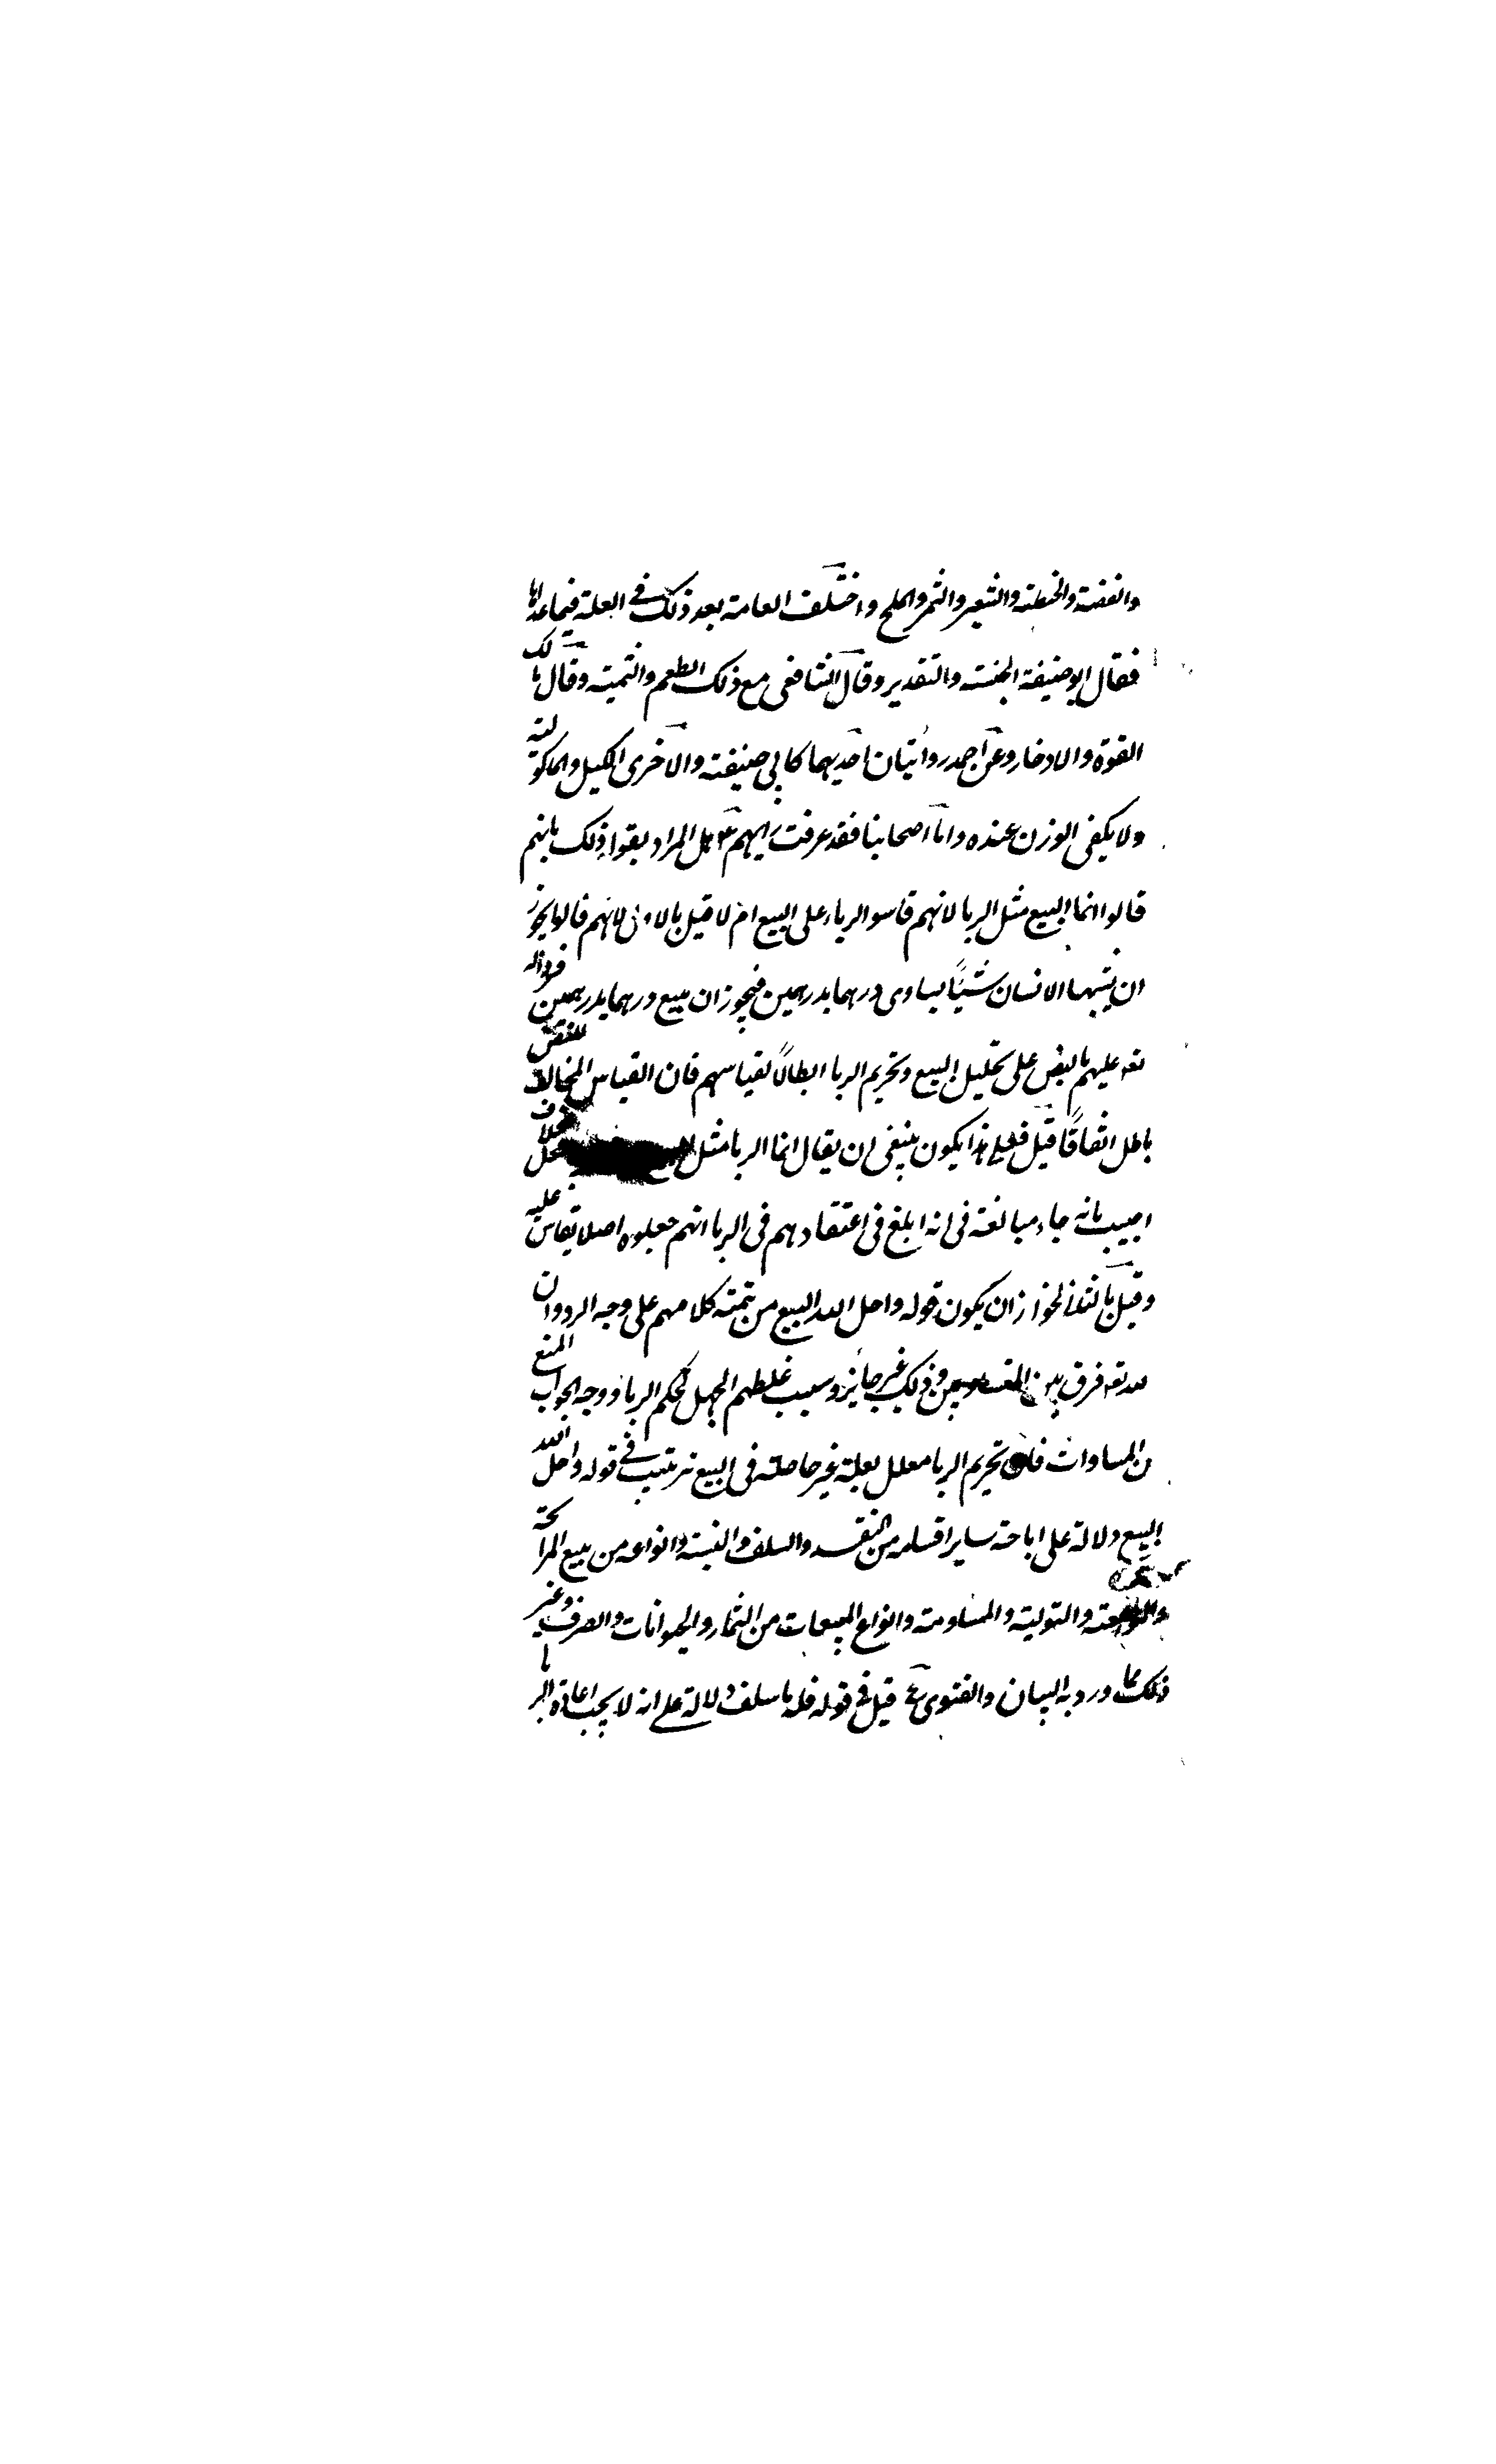 والفضة والحنطة والشعير والتمر والملح واختلف العامة بعد ذلك في العلة فيما عداها
فقال ابو حنيفة الجنسية والتقدير وقال الشافعي مع ذلك الطعم والثمنية وقال مالك
القوة والادخار وعن احمد روايتان احديهما كابي حنيفة والاخرى الكيل والماكولية
ولا يكفي الوزن عنده واما اصحابنا فقد عرفت رايهم ٣ هل المراد بقوله ذلك بانهم
قالوا انما البيع مثل الربا لانهم قاسوا الرباء على البيع ام لا قيل بالاول لانهم قالوا يجوز
ان يشترى الانسان شيئًا يساوى درهما بدرهمين فيجوز ان يبيع درهما بدرهمين فرد الله
تعه عليهم بالنص على تحليل البيع وتحريم الربا ابطالًا لقياسهم فان القياس المخالف للنص
باطل اتفاقًا قيل فعلى هذا يكون ينبغى ان يقال انما الربا مثل
اجيب بانه جاء مبالغة في انه ابلغ في اعتقادهم في الربا انهم جعلوه اصلا يقاس عليه
وقيل بالثاني لجواز ان يكون قوله واحل الله البيع من تتمة كلامهم على وجه الرد وان
الله تعه فرق بين وذلك غير جائز وسبب غلطهم الجهل بحكم الربا ووجه الجواب المنع
من المساوات فان تحريم الربا معلل بعلة غير حاصلة في البيع ترتيب في قوله واحل الله
البيع دلالة على اباحة ساير اقسامه من النقد والسلف والنسية وانواعه من بيع المرابحة
والتولية والمساومة وانواع المبيعات من الثمار والحيوانات والصرف وغير
ذلك مما ورد به البيان والفتوى ع قيل في قوله فله ما سلف دلالة على انه لا يجب اعادة الربا